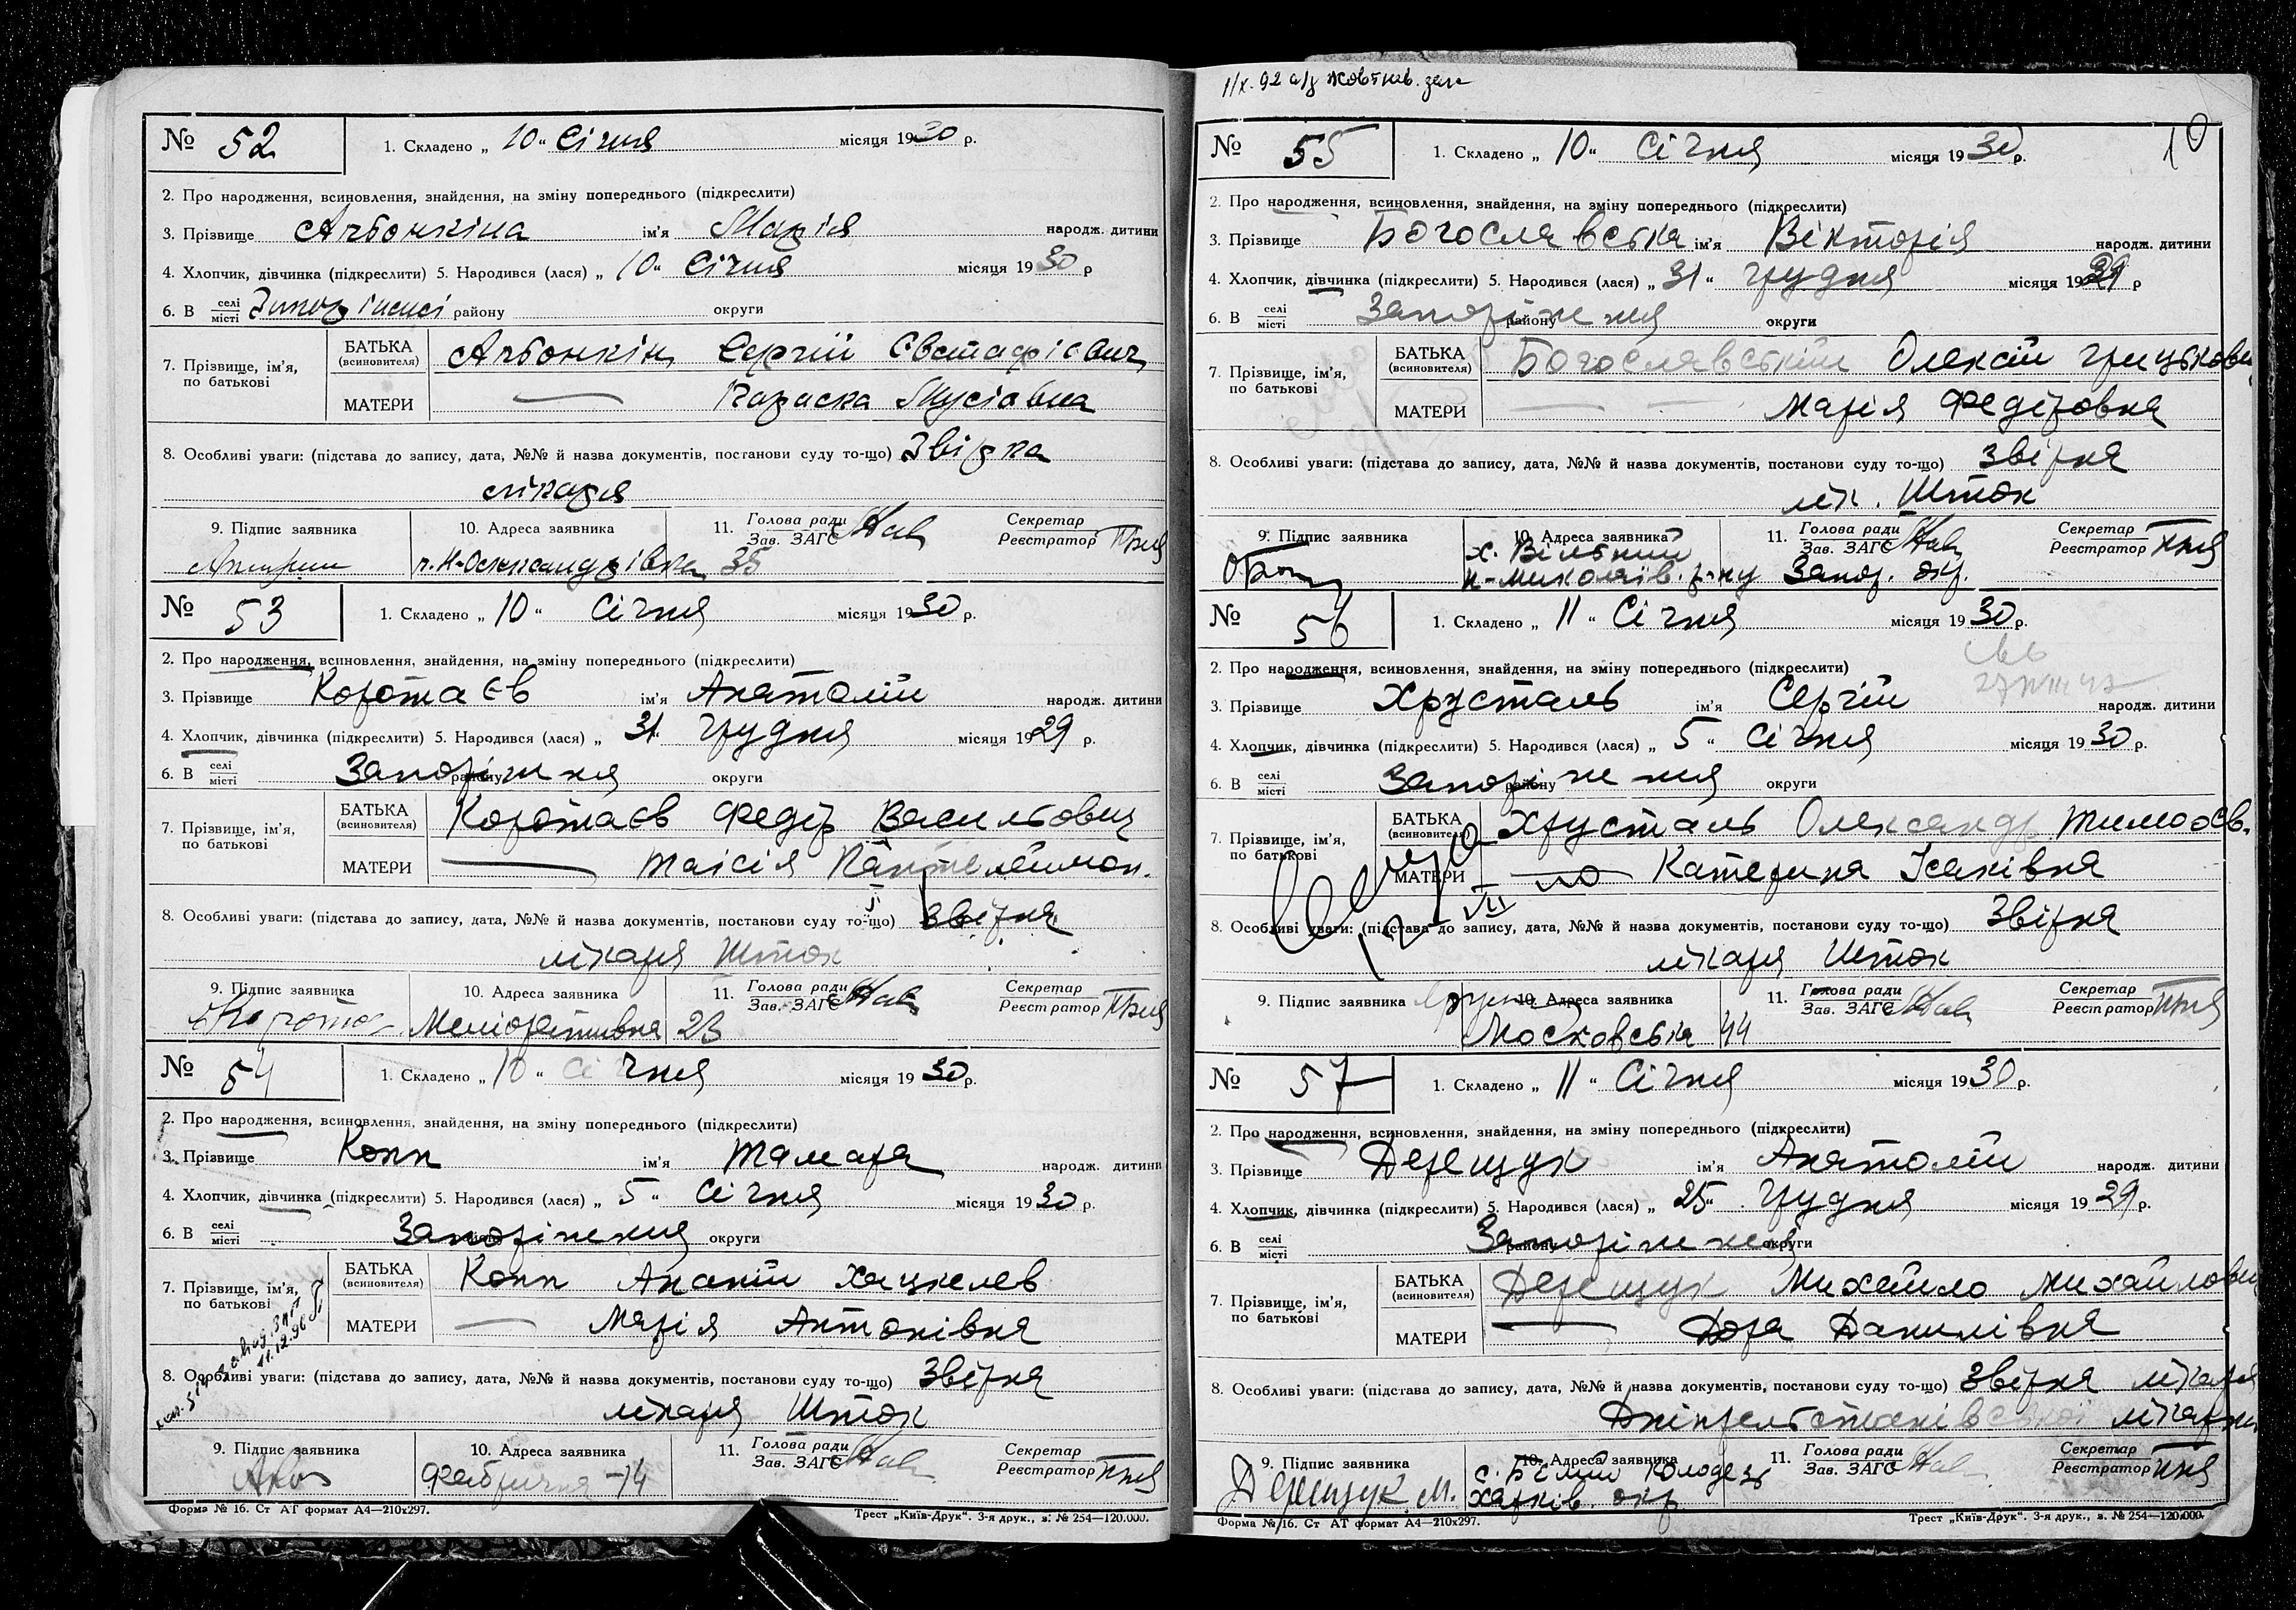 № 52 1. Складено „ 10 “ Січня місяця 1930 р.
2. Про народження, всиновлення, знайдення, на зміну попереднього (підкреслити)
3. Прізвище Ачбонкіна ім'я Марія народж. дитини
4. Хлопчик, дівчинка (підкреслити) 5. Народився (лася) „ 10 “ Січня місяця 1930 р
6. В селі місті району округи
7. Прізвище, ім'я, по батькові БАТЬКА (всиновителя) Ачбонкін Сергій Євстафієвич
МАТЕРИ — Параска Мусіовна
8. Особливі уваги: (підстава до запису, дата, №№ й назва документів, постанови суду то-що) Звірка
лікаря
9. Підпис заявника 10. Адреса заявника 11. Голова ради Зав. ЗАГС Секретар Реєстратор
Н-Олександрівка 35
№ 53 1. Складено „ 10 “ Січня місяця 1930 р.
2. Про народження, всиновлення, знайдення, на зміну попереднього (підкреслити)
3. Прізвище Коротаєв ім'я Анатолій народж. дитини
4. Хлопчик, дівчинка (підкреслити) 5. Народився (лася) „ 31 “ грудня місяця 1929 р.
6. В селі місті Запоріжжя району округи
7. Прізвище, ім'я, по батькові БАТЬКА (всиновителя) Коротаєв Федір Васильович
МАТЕРИ — Таісія Пантелеймон.
8. Особливі уваги: (підстава до запису, дата, №№ й назва документів, постанови суду то-що) Звірка
лікаря Шток
9. Підпис заявника 10. Адреса заявника 11. Голова ради Зав. ЗАГС Секретар Реєстратор
Меліоративна 23
№ 54 1. Складено „ 10 “ Січня місяця 1930 р.
2. Про народження, всиновлення, знайдення, на зміну попереднього (підкреслити)
3. Прізвище Копп ім'я Тамара народж. дитини
4. Хлопчик, дівчинка (підкреслити) 5. Народився (лася) „ 5 “ Січня місяця 1930 р.
6. В селі місті Запоріжжя району округи
7. Прізвище, ім'я, по батькові БАТЬКА (всиновителя) Копп Ананій Хацкелев
МАТЕРИ — Марія Антонівна
8. Особливі уваги: (підстава до запису, дата, №№ й назва документів, постанови суду то-що) Звірка
лікаря Шток
9. Підпис заявника 10. Адреса заявника 11. Голова ради Зав. ЗАГС Секретар Реєстратор
Фабрична 14
Форма № 16. Ст АТ формат А4—210х297. Трест „Київ-Друк“. 3-я друк., в. № 254—120.000.
10
№ 55 1. Складено „ 10 “ Січня місяця 1930 р.
2. Про народження, всиновлення, знайдення, на зміну попереднього (підкреслити)
3. Прізвище Богославська ім'я Вікторія народж. дитини
4. Хлопчик, дівчинка (підкреслити) 5. Народився (лася) „ 31 “ грудня місяця 1929 р
6. В селі місті Запоріжжя району округи
7. Прізвище, ім'я, по батькові БАТЬКА (всиновителя) Богославський Олексій Грицькович
МАТЕРИ — — Марія Федоровна
8. Особливі уваги: (підстава до запису, дата, №№ й назва документів, постанови суду то-що) Звірка
лік. Шток
9. Підпис заявника 10. Адреса заявника 11. Голова ради Зав. ЗАГС Секретар Реєстратор
х. Вільний
Н-Миколаїв. р-ну Запор. окр.
№ 56 1. Складено „ 11 “ Січня місяця 1930 р.
2. Про народження, всиновлення, знайдення, на зміну попереднього (підкреслити)
3. Прізвище Хрусталь ім'я Сергій народж. дитини
4. Хлопчик, дівчинка (підкреслити) 5. Народився (лася) „ 5 “ Січня місяця 1930 р.
6. В селі місті Запоріжжя району округи
7. Прізвище, ім'я, по батькові БАТЬКА (всиновителя) Хрусталь Олександр Тимоов.
МАТЕРИ — Катерина Ісаківна
8. Особливі уваги: (підстава до запису, дата, №№ й назва документів, постанови суду то-що) Звірка
лікаря Шток
9. Підпис заявника 10. Адреса заявника 11. Голова ради Зав. ЗАГС Секретар Реєстратор
Московська 44
№ 57 1. Складено „ 11 “ Січня місяця 1930 р.
2. Про народження, всиновлення, знайдення, на зміну попереднього (підкреслити)
3. Прізвище Дерещук ім'я Анатолій народж. дитини
4. Хлопчик, дівчинка (підкреслити) 5. Народився (лася) „ 25 “ грудня місяця 1929 р.
6. В селі місті Запоріжжя району округи
7. Прізвище, ім'я, по батькові БАТЬКА (всиновителя) Дерещук Михайло Михайлович
МАТЕРИ — Дора Данилівна
8. Особливі уваги: (підстава до запису, дата, №№ й назва документів, постанови суду то-що) Звірка лікаря
лікарні
9. Підпис заявника 10. Адреса заявника 11. Голова ради Зав. ЗАГС Секретар Реєстратор
Дерещук М. с. Білий Колодезь
Харків. окр.
Форма № 16. Ст АТ формат А4—210х297. Трест „Київ-Друк“. 3-я друк., в. № 254—120.000.